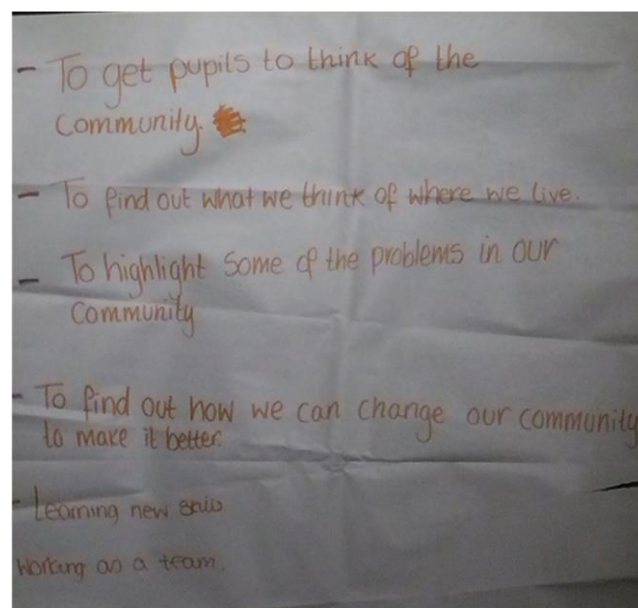 - To get pupils to think of the
community.
- To find out what we think of where we live.
- To highlight some of the problems in our
community
- To find out how we can change our community
to make it better.
- Learning new skills
Working as a team.